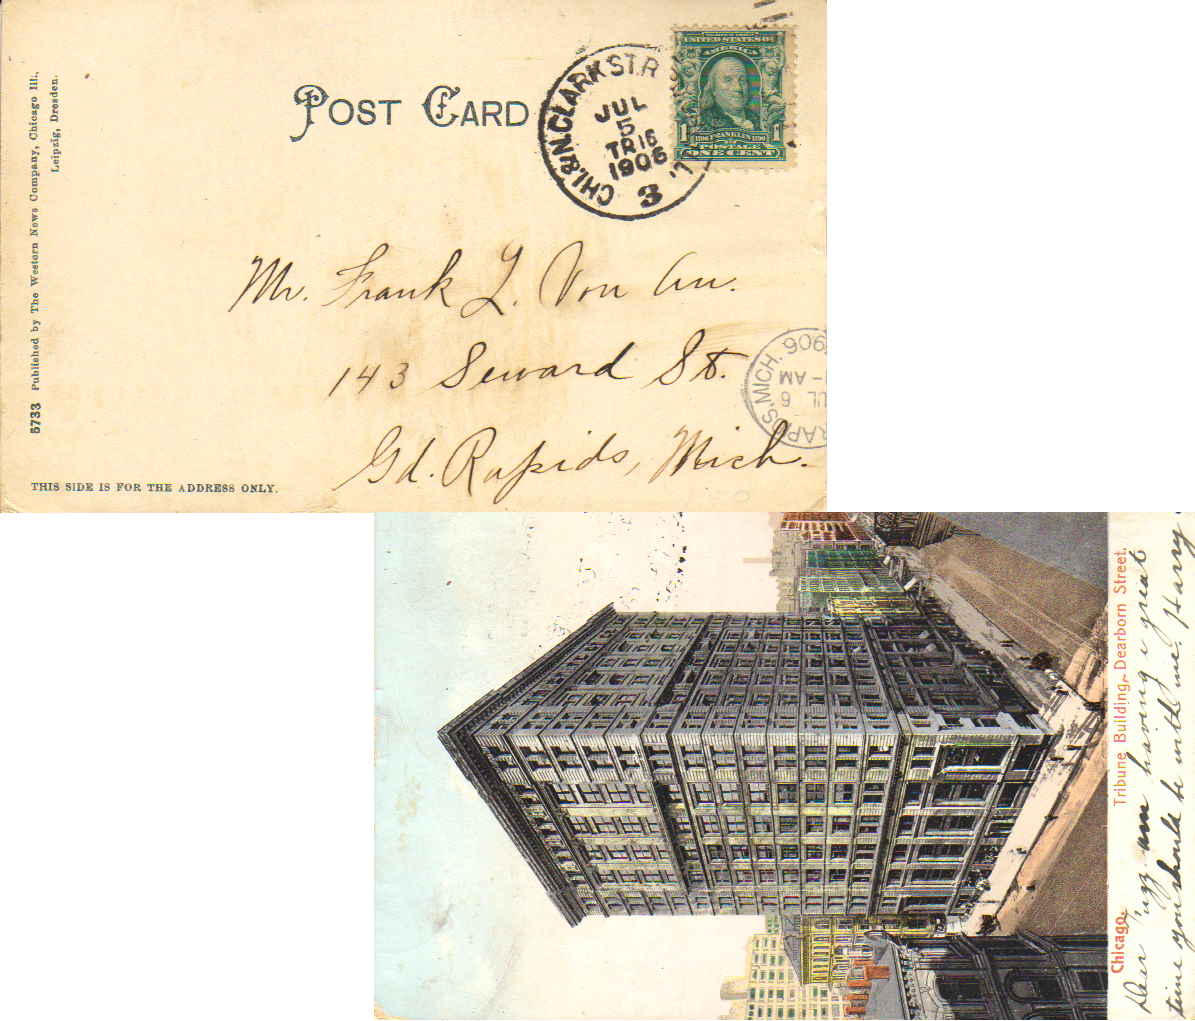 POST CARD
CHI.&N.CLARK STR.R
JUL
5
TR16
1906
3
UNITED STATES OF
AMERICA
1 FRANKLIN 1
POSTAGE
ONE CENT
Mr. Frank L. Von An.
143 Seward St.
Gd. Rapids, Mich.
RAPDS, MICH. 1906
JUL 6
-AM
5733 Published by The Western News Company, Chicago Ill.,
Leipzig, Dresden.
THIS SIDE IS FOR THE ADDRESS ONLY.
Chicago, Tribune Building, Dearborn Street.
Dear am having a great
time you should be with me. Harry